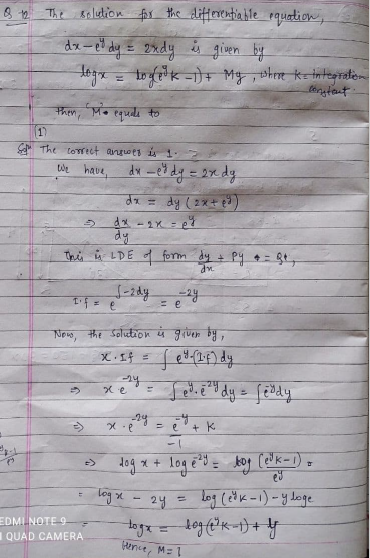 Q 12 The solution for the differentiable equation,
dx - e^y dy = 2xdy is given by
log x = log(e^y K - 1) + My, where K = Integration constant.
then, "M" equals to
(1)
Solⁿ The correct answer is 1.
We have, dx - e^y dy = 2x dy
dx = dy (2x + e^y)
⇒ dx/dy - 2x = e^y
This is LDE of form dy/dx + Py = Q,
I.f = e^∫-2dy = e^-2y
Now, the solution is given by,
x · I.f = ∫ e^y · (I.f) dy
⇒ x e^-2y = ∫ e^y · e^-2y dy = ∫ e^-y dy
⇒ x · e^-2y = e^-y/-1 + K
⇒ log x + log e^-2y = log (e^y K - 1)/e^y =
= log x - 2y = log (e^y K - 1) - y log e
= log x = log (e^y K - 1) + y
Hence, M = 1
EDMI NOTE 9
I QUAD CAMERA